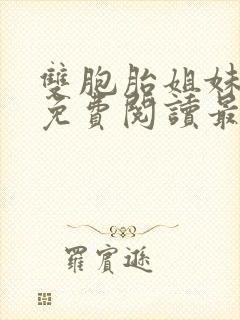 雙胞胎姐妹
免費閱讀最
羅賓遜